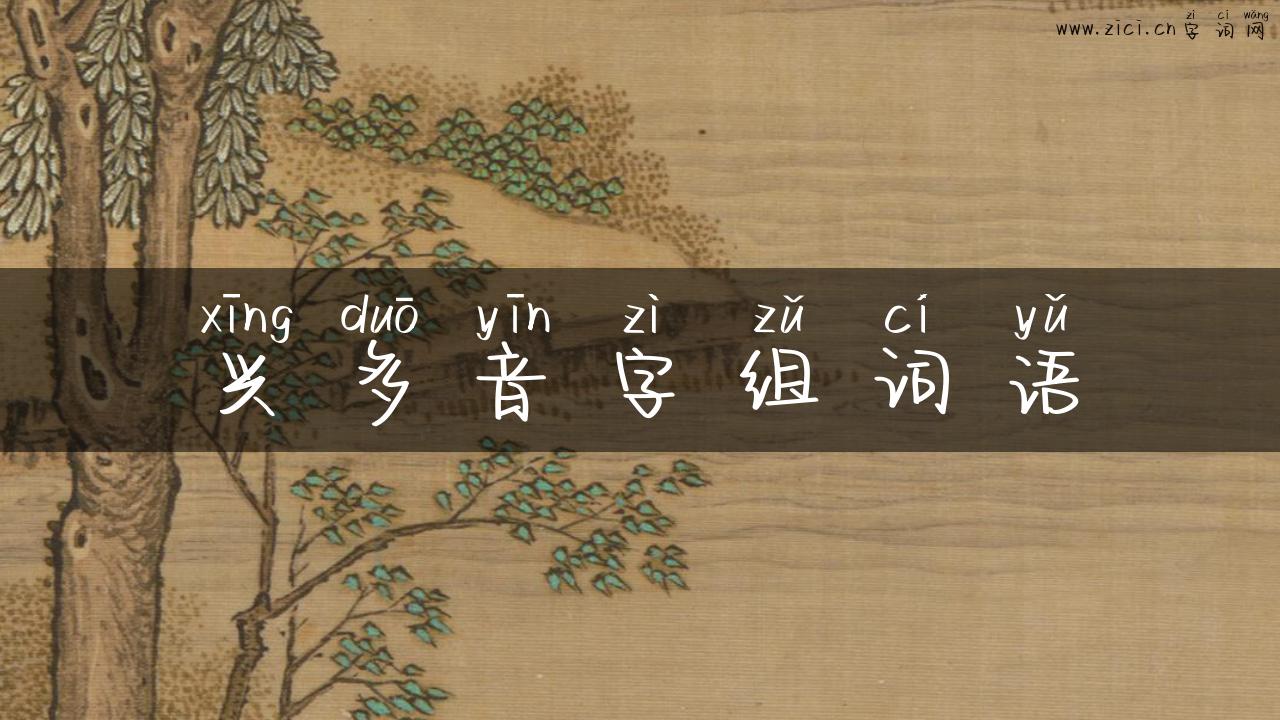 zì cí wǎng
www.zici.cn 字词网
xīng duō yīn zì zǔ cí yǔ
兴多音字组词语